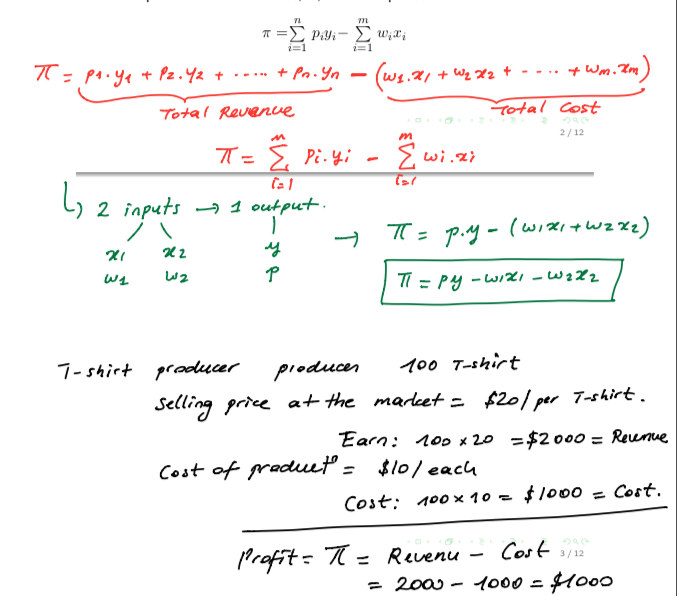 π = ∑ⁿᵢ₌₁ pᵢyᵢ − ∑ᵐᵢ₌₁ wᵢxᵢ
π = p1.y1 + p2.y2 + ..... + pn.yn − (w1.x1 + w2x2 + .... + wm.xm)
Total Revenue Total Cost
2 / 12
π = ∑ⁿᵢ₌₁ Pi.yi − ∑ᵐᵢ₌₁ wi.xi
↳ 2 inputs → 1 output.
x1 x2 y → π = p.y − (w1x1 + w2x2)
w1 w2 p π = py − w1x1 − w2x2
T-shirt producer produces 100 T-shirt
Selling price at the market = $20/per T-shirt.
Earn: 100 x 20 = $2000 = Revenue
Cost of product = $10/each
Cost: 100 x 10 = $1000 = Cost.
Profit = π = Revenu − Cost
3 / 12
= 2000 − 1000 = $1000